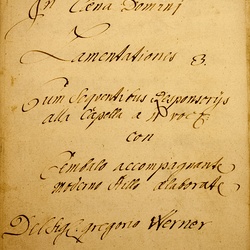 In Cena Domini
Lamentationes 3.
Cum Sequentibus Responsorijs
alla Capella a 4 voci
con
Cembalo accompagnante
moderno stillo elaborate
Del Sig: Gregorio Werner